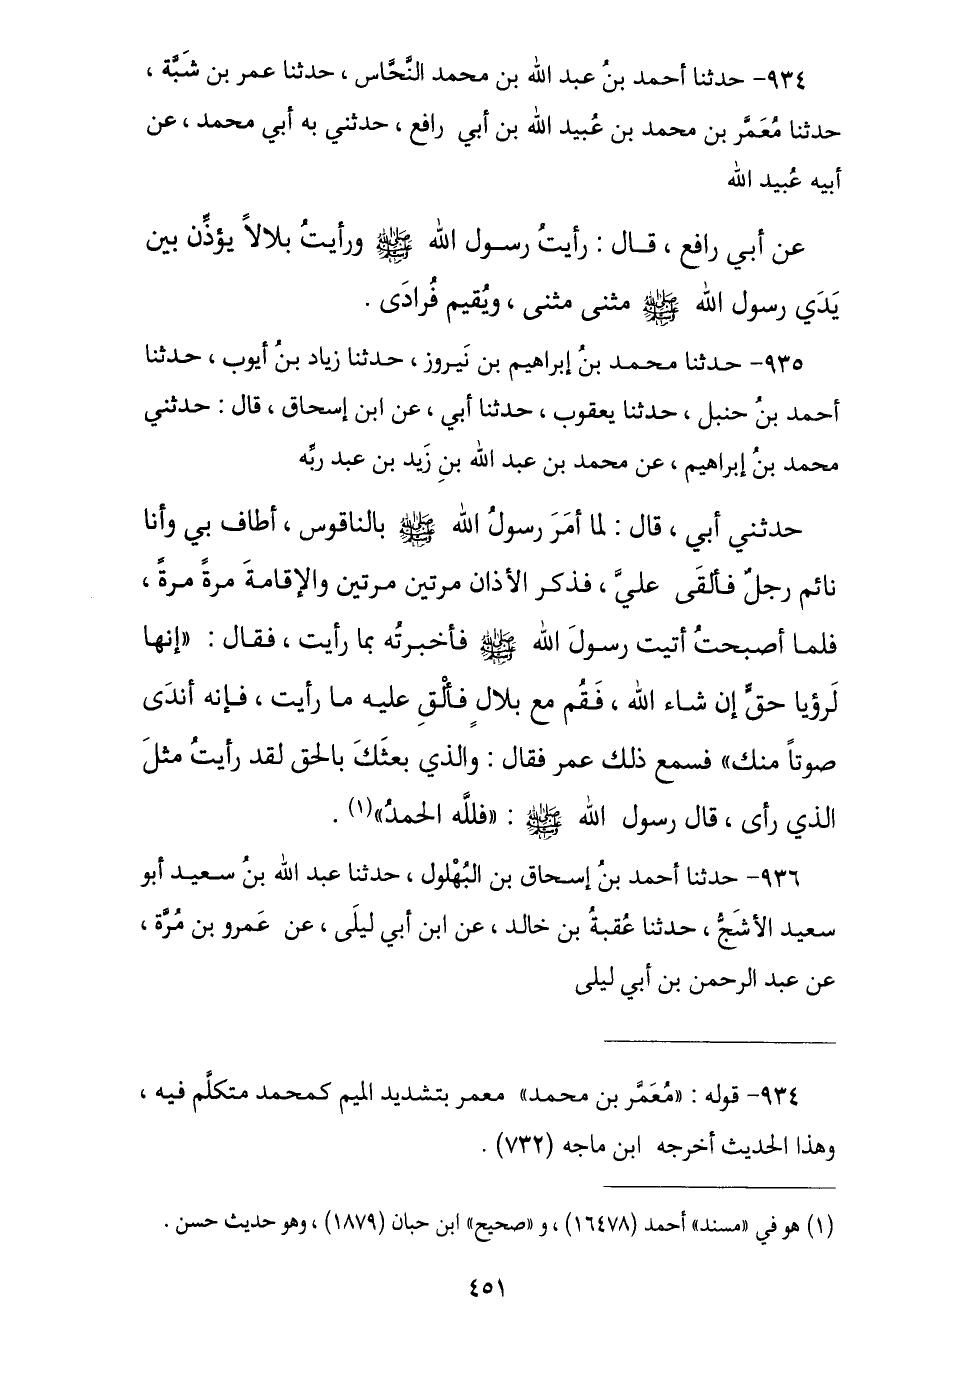 ٩٣٤- حدثنا أحمد بنُ عبد الله بن محمد النَّحَّاس ، حدثنا عمر بن شَبَّة ،
حدثنا مُعَمَّر بن محمد بن عُبيد الله بن أبي رافع ، حدثني به أبي محمد ، عن
أبيه عُبيد الله
عن أبي رافع ، قال : رأيتُ رسول الله ﷺ ورأيتُ بلالاً يؤذِّن بين
يَدَي رسول الله ﷺ مثنى مثنى ، ويُقيم فُرادَى .
٩٣٥- حدثنا محمد بنُ إبراهيم بن نَيروز ، حدثنا زياد بنُ أيوب ، حدثنا
أحمد بنُ حنبل ، حدثنا يعقوب ، حدثنا أبي ، عن ابن إسحاق ، قال : حدثني
محمد بنُ إبراهيم ، عن محمد بن عبد الله بنِ زَيد بن عبد ربِّه
حدثني أبي ، قال : لما أمَرَ رسولُ الله ﷺ بالناقوس ، أطاف بي وأنا
نائم رجلٌ فألقَى عليَّ ، فذكر الأذان مرتين مرتين والإقامةَ مرةً مرةً ،
فلما أصبحتُ أتيت رسولَ الله ﷺ فأخبرتُه بما رأيت ، فقال : «إنها
لَرؤيا حقٍّ إن شاء الله ، فَقُم مع بلالٍ فألْقِ عليه ما رأيت ، فإنه أندَى
صوتاً منك» فسمع ذلك عمر فقال : والذي بعثَكَ بالحق لقد رأيتُ مثلَ
الذي رأى ، قال رسول الله ﷺ : «فللَّه الحمدُ»(١) .
٩٣٦- حدثنا أحمد بنُ إسحاق بن البُهْلول ، حدثنا عبد الله بنُ سعيد أبو
سعيد الأشَجُّ ، حدثنا عُقبةُ بن خالد ، عن ابن أبي ليلَى ، عن عَمرو بن مُرَّة ،
عن عبد الرحمن بن أبي ليلى
٩٣٤- قوله : «مُعَمَّر بن محمد» معمر بتشديد الميم كمحمد متكلَّم فيه ،
وهذا الحديث أخرجه ابن ماجه (٧٣٢) .
(١) هو في «مسند» أحمد (١٦٤٧٨) ، و «صحيح» ابن حبان (١٨٧٩) ، وهو حديث حسن .
٤٥١